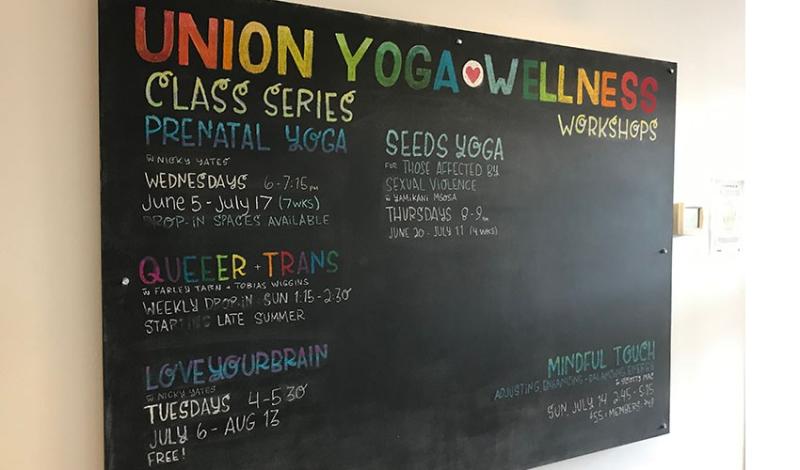 UNION YOGA WELLNESS
CLASS SERIES
WORKSHOPS
PRENATAL YOGA
W NICKY YATES
WEDNESDAYS 6-7:15 PM
June 5 - JULY 17 (7WKS)
DROP-IN SPACES AVAILABLE
SEEDS YOGA
FOR THOSE AFFECTED BY
SEXUAL VIOLENCE
W YAMIKANI MSOSA
THURSDAYS 8-9 PM
JUNE 20 - JULY 11 (4 WKS)
QUEEER + TRANS
W FARLEY TARN + TOBIAS WIGGINS
WEEKLY DROP-IN SUN 1:15-2:30
STARTING LATE SUMMER
LOVEYOURBRAIN
W NICKY YATES
TUESDAYS 4-530
JULY 6 - AUG 13
FREE!
MINDFUL TOUCH
ADJUSTING, ENHANCING + BALANCING ENERGY
SUN, JULY 14 2:45 - 5:15
MEMBERS: